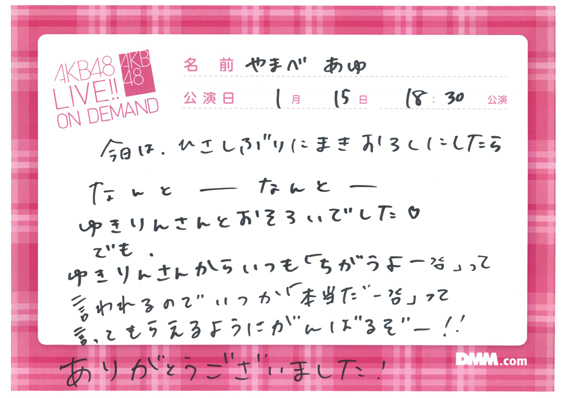 AKB48
LIVE!!
ON DEMAND
AKB
48
名 前 やまべ あゆ
公演日 1月 15日 18:30 公演
今日は、ひさしぶりにまきおろしにしたら
なんと ー なんと ー
ゆきりんさんとおそろいでした♡
でも、
ゆきりんさんからいつも「ちがうよー笑」って
言われるのでいつか「本当だー笑」って
言ってもらえるようにがんばるぞー!!
ありがとうございました!
DMM.com